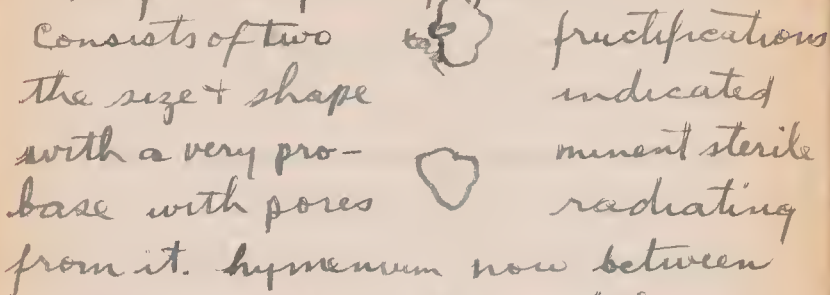 Consists of two fructifications
the size + shape indicated
with a very pro- minent sterile
base with pores radiating
from it. hymenium now between